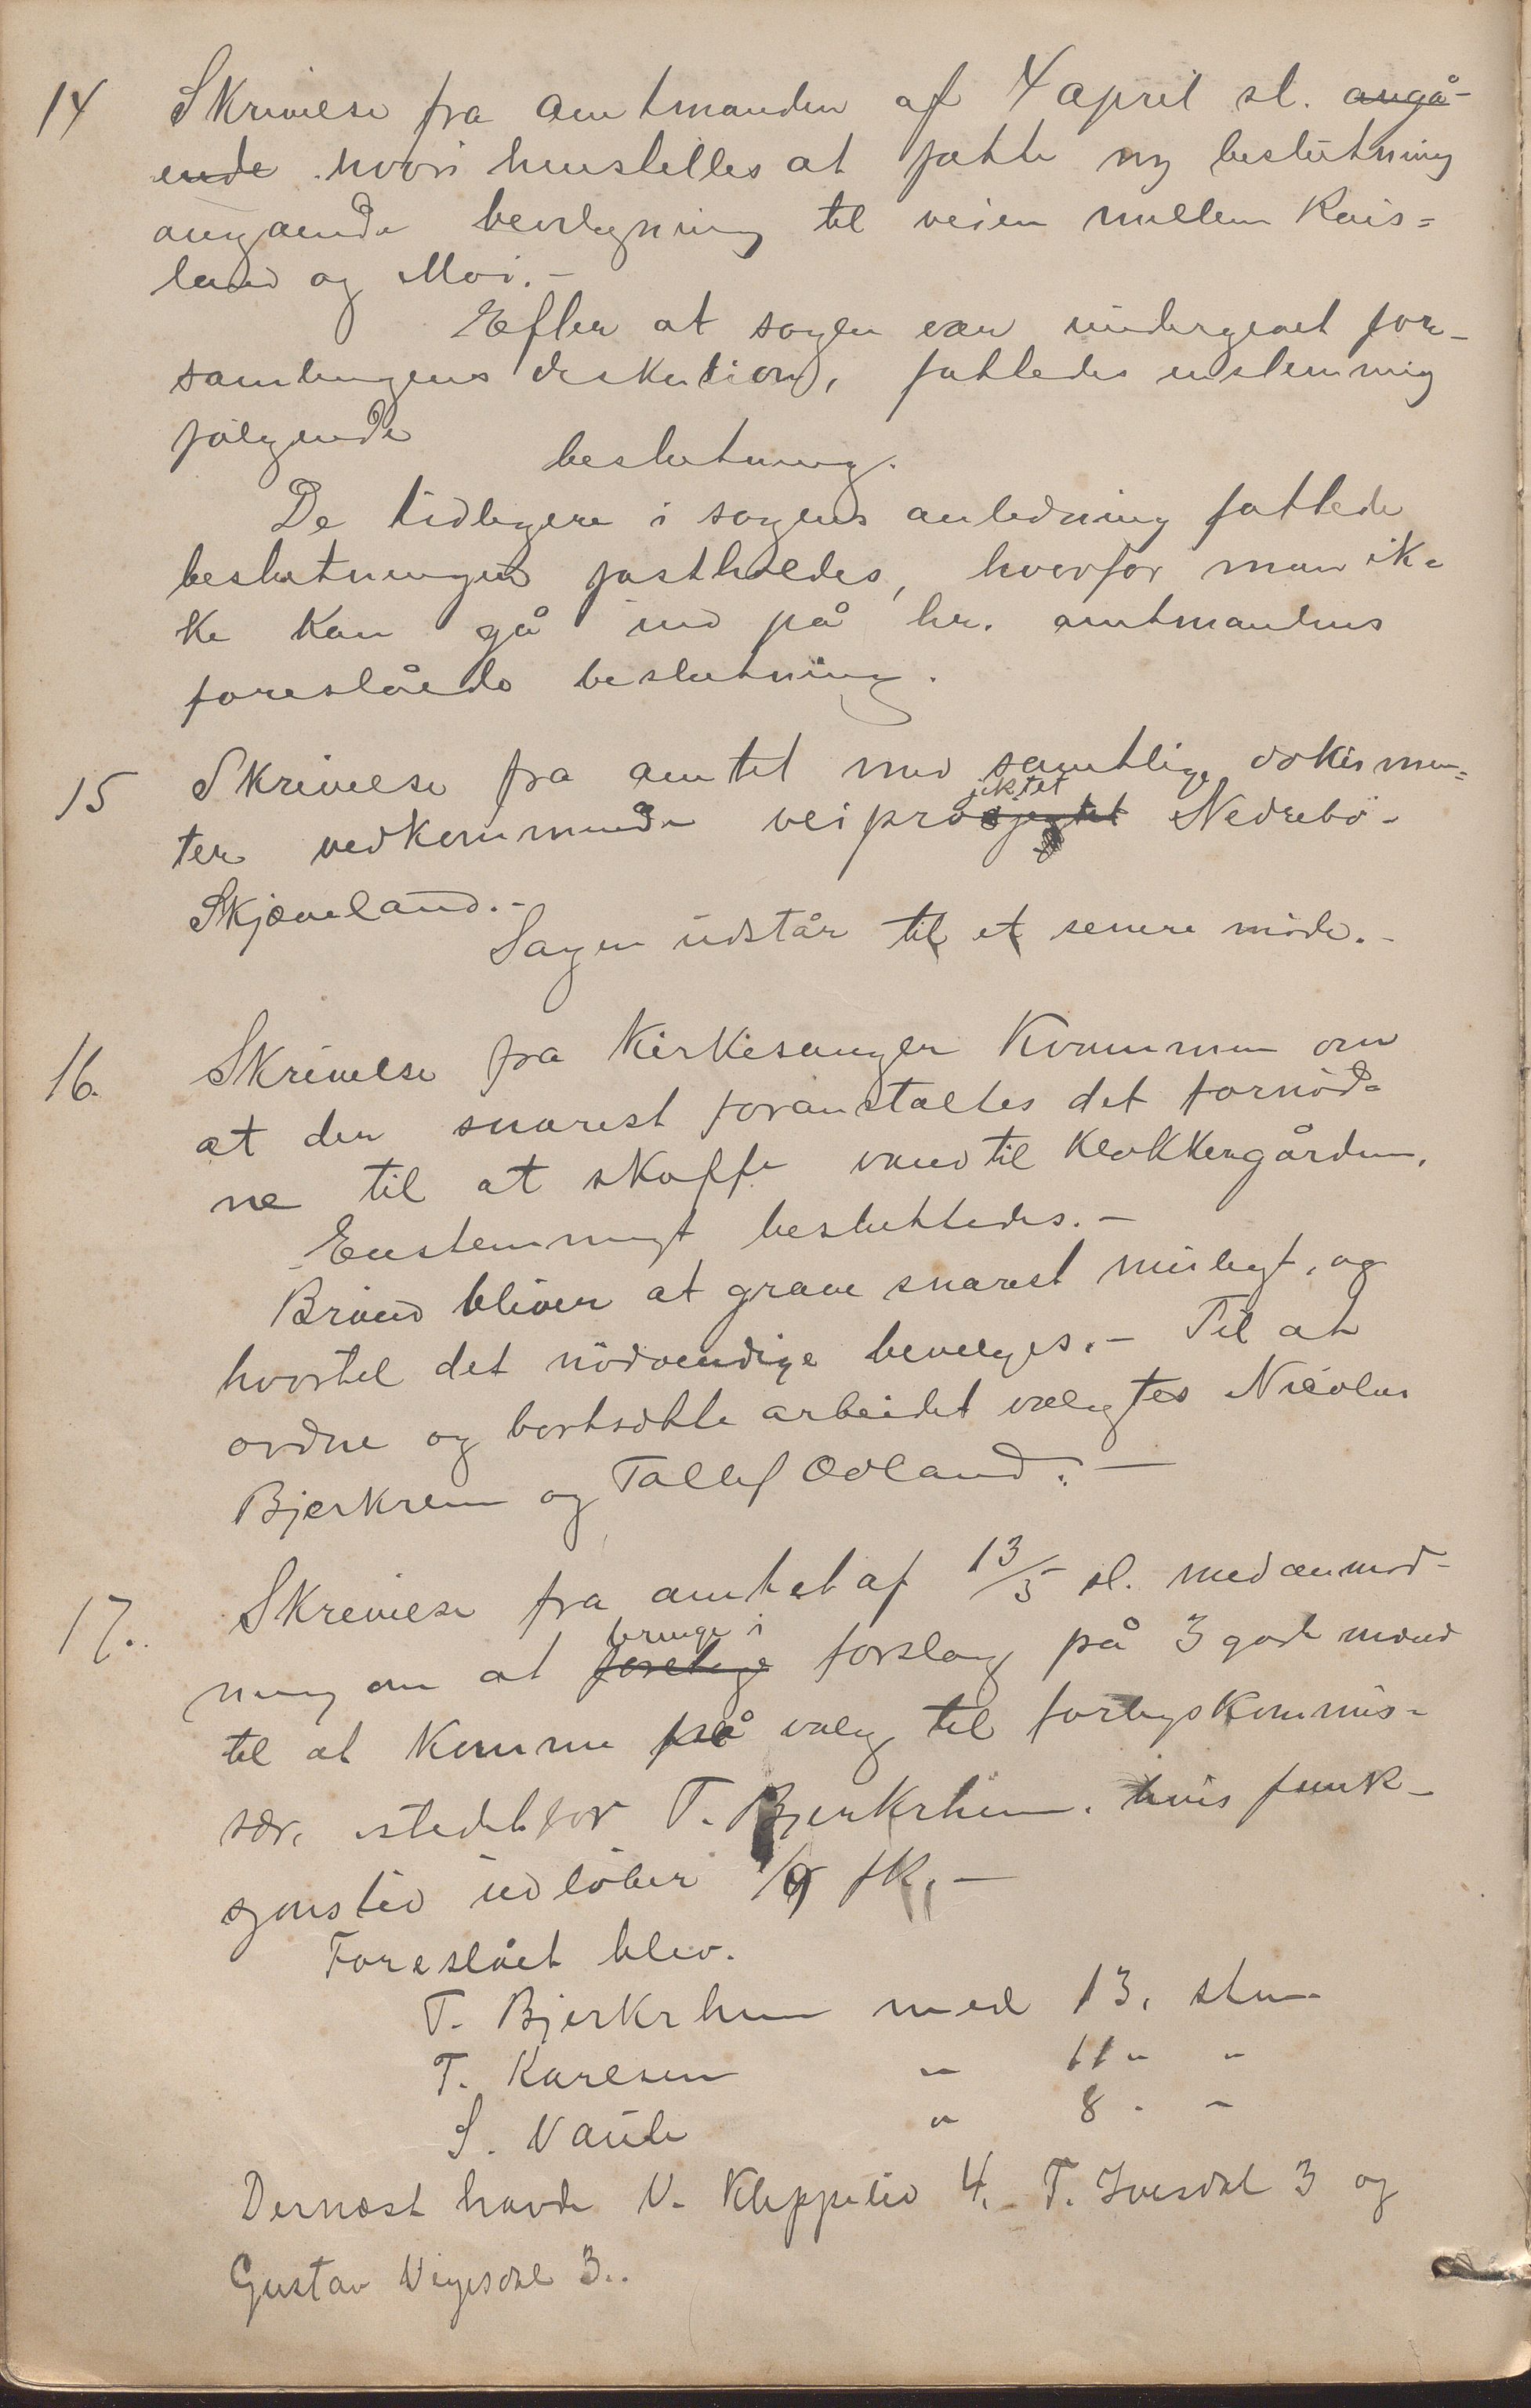 14 Skrivelse fra amtmanden af 4 april sl. angå-
ende hvori henstilles at fatte ny beslutning
angaaende bevilgning til veien mellem Rois=
land og Moi.-
Efter at sagen var undergivet for-
samlingens diskution, fattedes enstemmig
følgende
beslutning.
De tidligere i sagens anledning fattede
beslutninger fastholdes, hvorfor man ik-
ke kan gå ind på hr. amtmandens
foreslåede beslutning.
15 Skrivelse fra amtet med samtlige dokumen=
jektet
ter vedkommende veipro Nedrebø-
Skjæveland.-
Sagen udstår til et senere møde.-
16. Skrivelse fra Kirkesanger Kvammen om
at der snarest foranstaltes det fornød=
ne til at skaffe vand til klokkergården.
Enstemmigt besluttedes.-
Brønd bliver at grave snarest muligt, og
hvortil det nödvendige bevilges.- Til at
ordne og bortsætte arbeidet valgtes Nicolai
Bjerkrem og Tallef Odland.-
17. Skrivelse fra amtet af 13/5 sl. med anmod-
bringe i
ning om at foretage forslag på 3 gode mænd
til at komme på valg til forligskommis-
sær, istedetfor T. Bjerkrheim, hvis funk-
sjonstid udløber 1/9 fk.-
Foreslået blev.
T. Bjerkrheim med 13. stm.
T. Karlsen " 11 " "
S. Naule " 8. "
Dernæst havde N. Kleppelid 4, T. Ivesdal 3 og
Gustav Vigesdal 3..